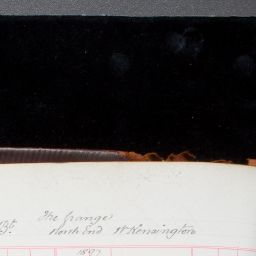 The Grange
North End W Kensington
1897